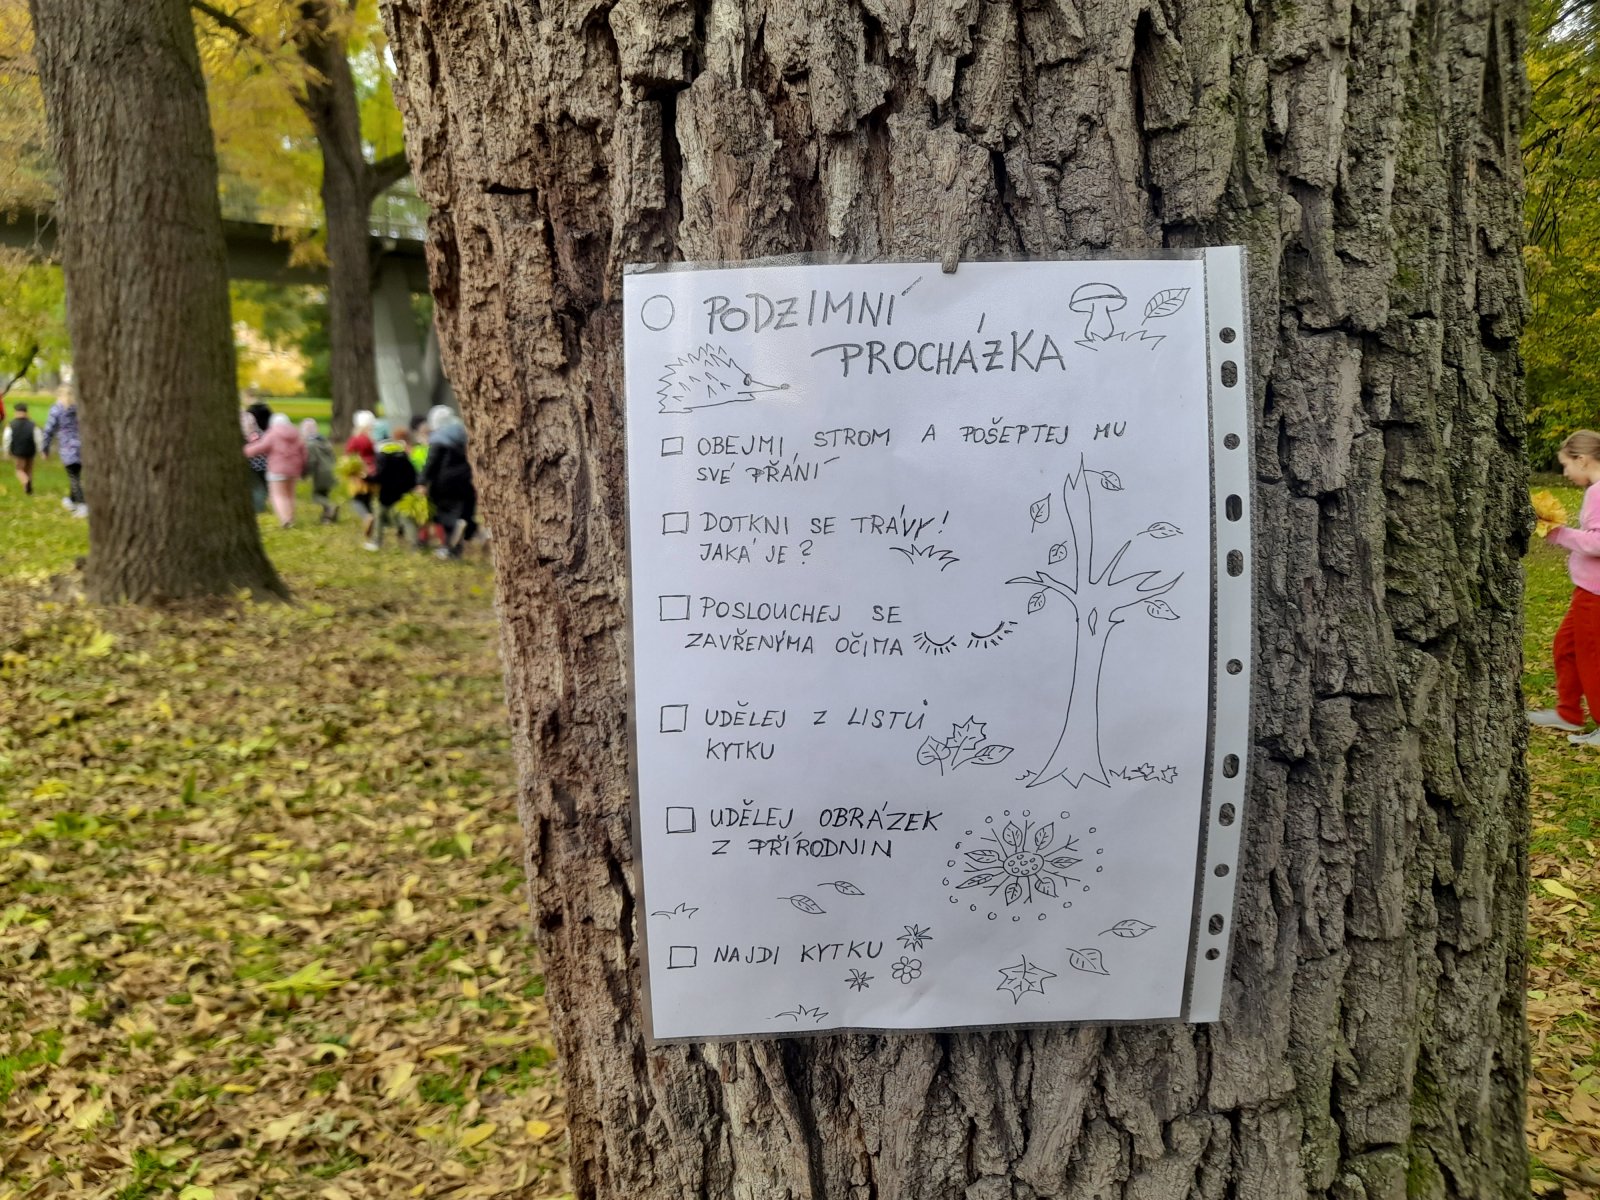 PODZIMNÍ
PROCHÁZKA
OBEJMI STROM A POŠEPTEJ MU
SVÉ PŘÁNÍ
DOTKNI SE TRÁVY!
JAKÁ JE?
POSLOUCHEJ SE
ZAVŘENÝMA OČIMA
UDĚLEJ Z LISTŮ
KYTKU
UDĚLEJ OBRÁZEK
Z PŘÍRODNIN
NAJDI KYTKU